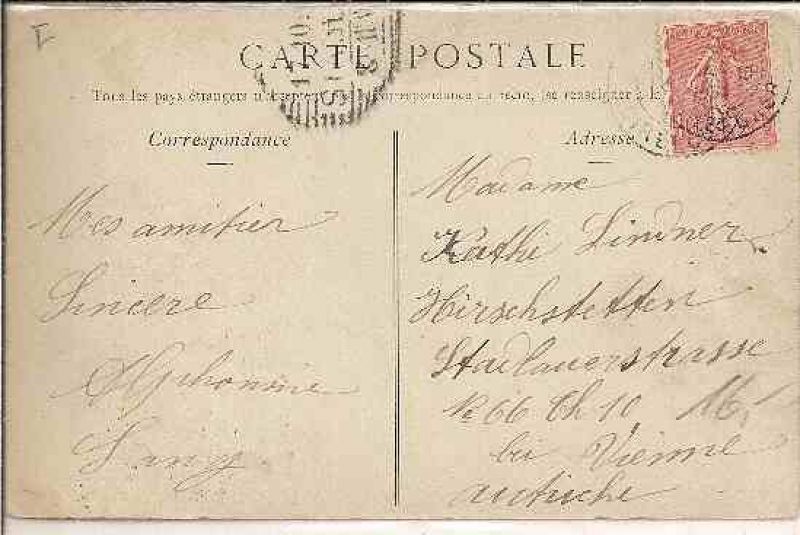 CARTE POSTALE
Tous les pays étrangers n'acceptent correspondance au recto, (se renseigner à la
Correspondance
Adresse
Mes amitier
Sincere
Alphonsine
Madame
Kathi Lindner
Hirschstetten
Stadlauerstrasse
No 66 Th 10
bei Vienne
autriche